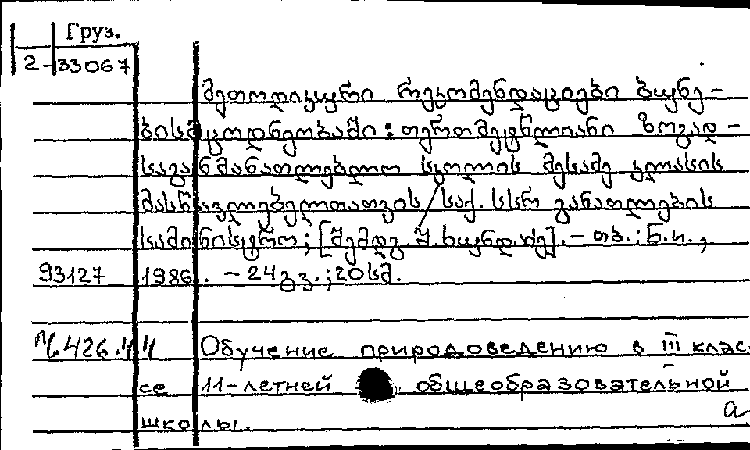 Груз.
2-33067
მეთოდიკური რეკომენდაციები ბუნე-
ბისმცოდნეობაში: თერთმეტწლიანი ზოგად-
საგანმანათლებლო სკოლის მესამე კლასის
მასწავლებელთათვის / საქ. სსრ განათლების
სამინისტრო; [შემდგ. მ. ხუნდაძე]. - თბ.: ნ. ი.,
93127 1986. - 24 გვ.; 20 სმ.
426. Обучение природоведению в III клас-
се 11-летней общеобразовательной
школы.